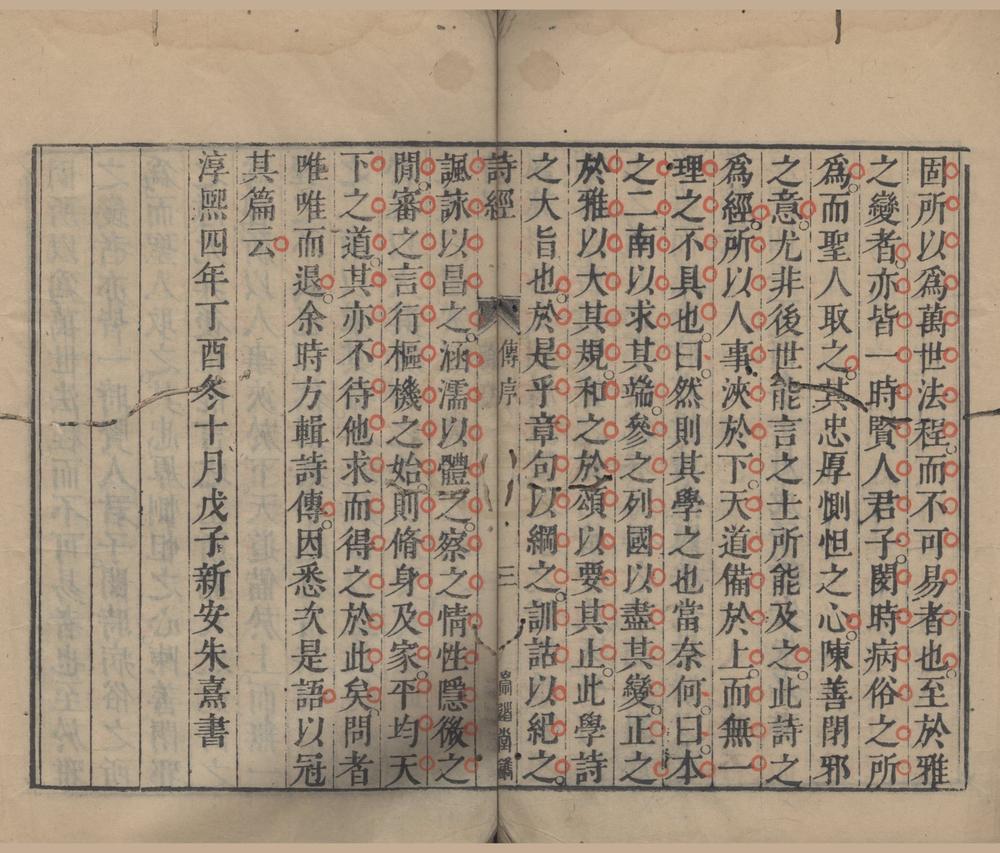 固所以爲萬世法程而不可易者也至於雅
之變者亦皆一時賢人君子閔時病俗之所
爲而聖人取之其忠厚惻怛之心陳善閉邪
之意尤非後世能言之士所能及之此詩之
爲經所以人事浹於下天道備於上而無一
理之不具也曰然則其學之也當奈何曰本
之二南以求其端參之列國以盡其變正之
於雅以大其規和之於頌以要其止此學詩
之大旨也於是乎章句以綱之訓詁以紀之
詩經 傳序 三
諷詠以昌之涵濡以體之察之情性隱微之
閒審之言行樞機之始則脩身及家平均天
下之道其亦不待他求而得之於此矣問者
唯唯而退余時方輯詩傳因悉次是語以冠
其篇云
淳熙四年丁酉冬十月戊子新安朱熹書